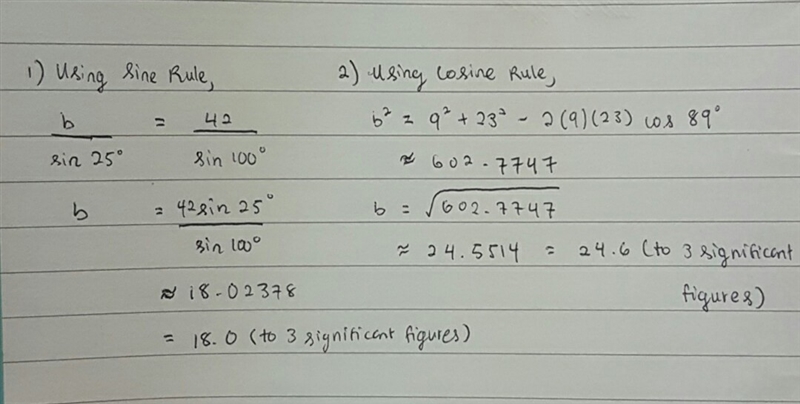 1) Using Sine Rule,
b / sin 25° = 42 / sin 100°
b = 42 sin 25° / sin 100°
≈ 18.02378
= 18.0 (to 3 significant figures)
2) Using Cosine Rule,
b² = 9² + 23² - 2(9)(23) cos 89°
≈ 602.7747
b = √602.7747
≈ 24.5514 = 24.6 (to 3 significant
figures)